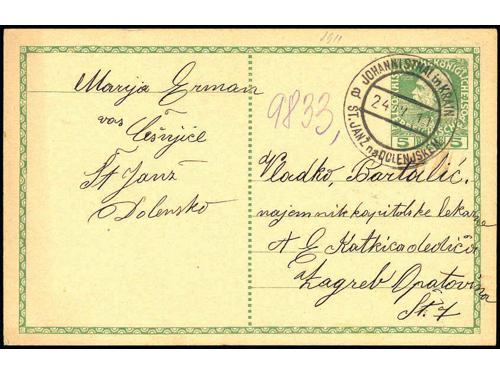 1911
Marija Erman
vas
Češnjice
Št Janž
Dolensko
9833,
JOHANNISTHAL in KRAIN
24
11
ST. JANŽ na DOLENJSKEM
5
5
Vladko, Bartulić.
najemnik kapitolske lekarne
A E Katkića dediči
Zagreb Opatovina
Št. 7